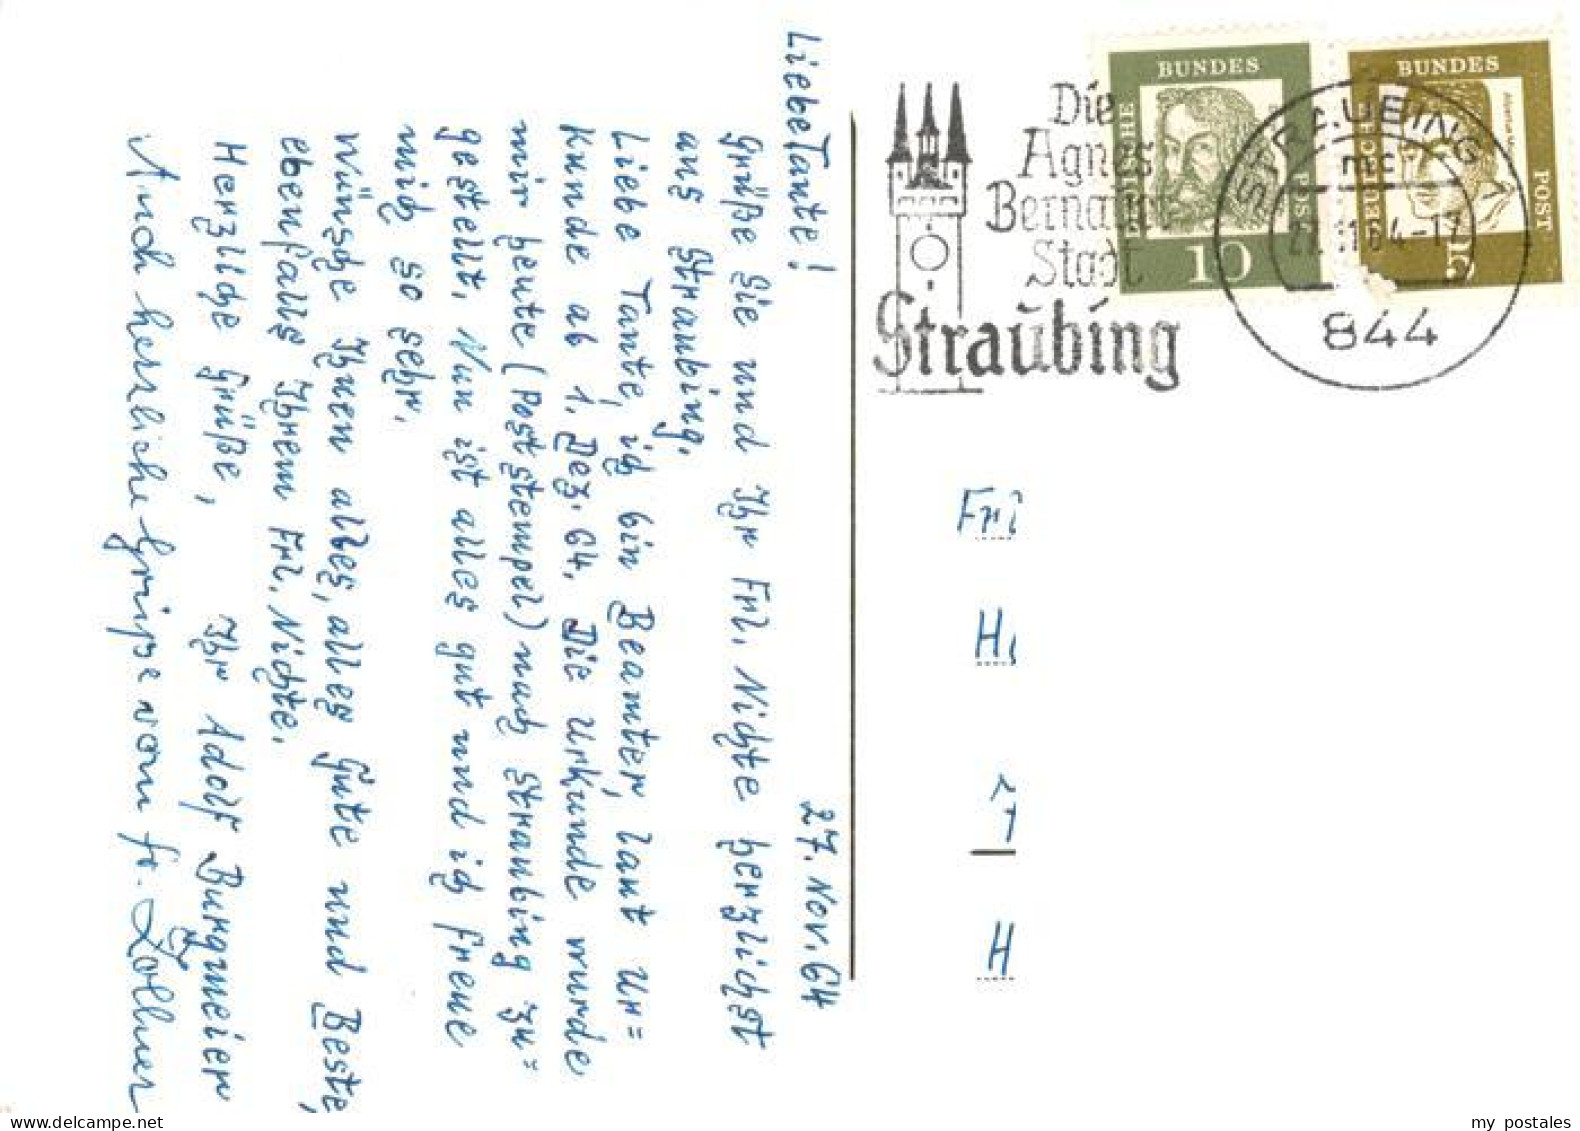 Liebe Tante!
27. Nov. 64
Grüße Sie und Ihr Frl. Nichte herzlichst
aus Straubing.
Liebe Tante, ich bin Beamter, laut Ur=
kunde ab 1. Dez. 64. Die Urkunde wurde
mir heute (Poststempel) nach Straubing zu=
gestellt. Nun ist alles gut und ich freue
mich so sehr.
Wünsche Ihnen alles, alles Gute und Beste,
ebenfalls Ihrem Frl. Nichte.
Herzliche Grüße,
Ihr Adolf Burgmeier
Auch herzliche Grüße von Fr. Zollner
Die
Agnes
Bernauer
Stadt
Straubing
DEUTSCHE
BUNDES
POST
10
DEUTSCHE
BUNDES
POST
15
STRAUBING 1
27.11.64-17
844
H
my postales